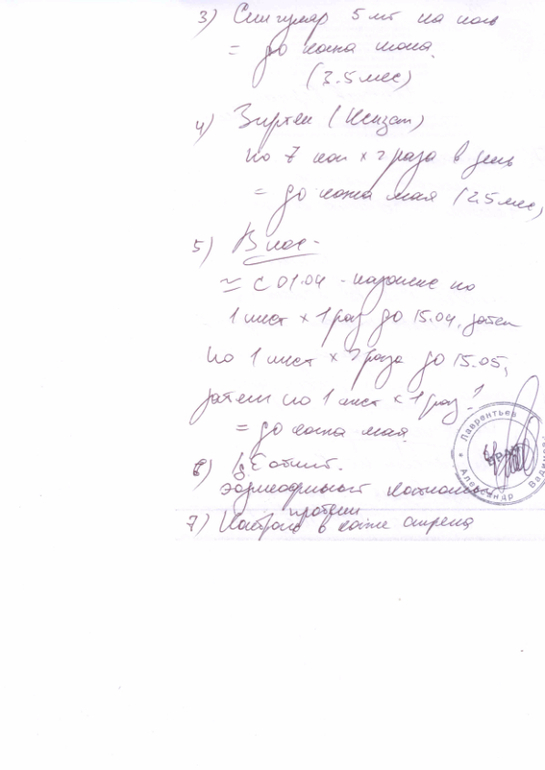 3) Сингуляр 5 мг на ночь
= до конца
(3.5 мес)
4) Зиртек (
по 7 кап х 2 раза в день
= до конца мая (2,5 мес)
5) В нос -
≈ с 01.04 - назонекс по
1 инст х 1 раз до 15.04, затем
по 1 инст х 2 раза до 15.05,
затем по 1 инст х 1 раз!
= до конца мая
6) IgE общ.
эозинофильный катионный
протеин
7) Контроль в конце апреля
Лаврентьев
Александр